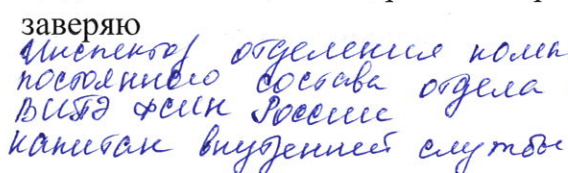 заверяю
Инспектор отделения комп
постоянного состава отдела
ВИПЭ ФСИН России
капитан внутренней службы